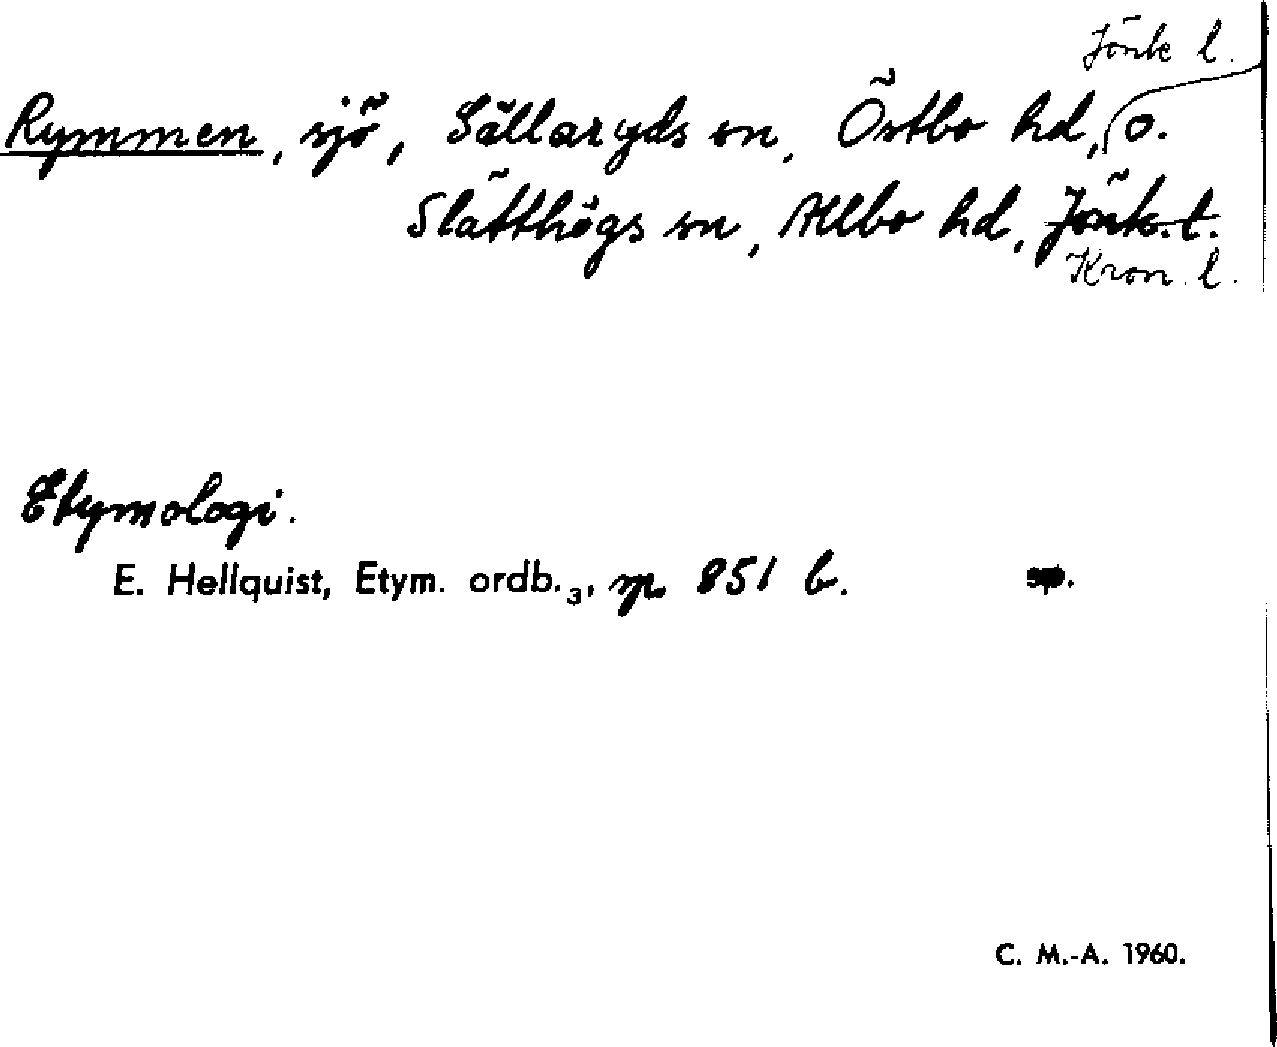 Jönk l.
Rymmen, sjö, Sällaryds sn, Östbo hd, o.
Slätthögs sn, Allbo hd, Jönk. l.
Kron. l.
Etymologi.
E. Hellquist, Etym. ordb.3, sp. 851 b.
C. M.-A. 1960.